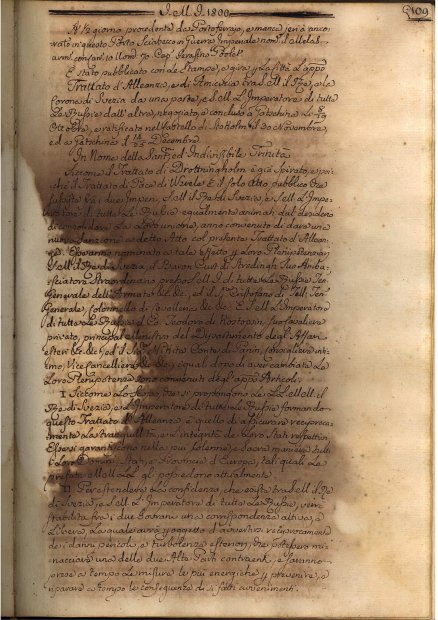 I. M. I. 1800.
109
A ½ giorno procedente da Portoferrajo, e manca jeri à anco-
rato in questo Porto Sciabecco in Guerra Imperiale nom.
arm. con 70 Cap.
È stato pubblicato con le Stampe, e gira per la Città l'app.
Trattato d'Alleanza, e di Amicizia tra S. M. il Rè, e la
Corona di Svezia da una parte, e S. M. L'Imperatore di tutte
Le Russie dall'altra, negoziato, e concluso à Gatschina li
Ottobre, e ratificato nel Castello di Stokolm il 30 Novembre,
ed a Gatschina il Decembre.
In Nome della Santa, ed Indivisibile Trinità
Siccome il Trattato di Drottningholm è già spirato, e poi-
che il Trattato di Pace di Werele È il solo Atto pubblico che
sussiste frà i due Imperi, S. M. il Rè di Svezia, e S. M. L'Impe-
ratore di tutte Le Russie egualmente animati dal desiderio
di consolidare La loro unione, anno convenuto di dare una
nuova Sanzione a detto Atto col presente Trattato d'Allean-
za. Essi anno nominato a tale effetto per Loro Plenipotenziarj
S. M. il Rè di Svezia, il Baron Curt di Stedingk Suo Amba-
sciatore Straordinario presso S. M. I. di tutte Le Russie Ten.
Generale dell'Armate &c. &c. ed il Sig. Cristofano di Toll, Ten.
Generale, Colonnello di Cavalleria &c. &c. E S. M. L'Imperatore
di tutte Le Russie il Co. Teodoro di Rostopsin, suo Consigliere
privato, principal Ministro del Dipartimento degli Affari
esteri &c. &c. ed il Sig. Nikita Conte di Panin, Consigliere inti-
mo, Vice Cancelliere &c. &c. i quali dopo di aver cambiate Le
Loro Plenipotenze sono convenuti degl'app. Articoli.
I. Siccome Lo Scopo, che si propongono Le LL. MM. il
Rè di Svezia, e L'Imperatore di tutte Le Russie formando
questo Trattato d'Alleanza, è quello di assicurare reciproca-
mente La tranquillità, e L'integrità de Loro Stati rispettivi,
Essi si garantiscono nella più solenne, e sacra maniera tutti
i Loro Dominj, Stati, e Provincie d'Europa, tali quali Le
prefate MM. LL. gli possiedono attualmente.
II. Per estendere La confidenza, che esiste tra S. M. il Rè
di Svezia, e S. M. L'Imperatore di tutte Le Russie, verrà
stabilita frà i due Sovrani una corrispondenza attiva, e
sincera, La quale avrà per oggetto d'avvertirsi reciprocamente
dei danni, pericoli, e turbolenze esteriori, che potessero mi-
nacciare una delle due Alte Parti contraenti, e saranno
prese a tempo Le misure le più energiche per prevenire, e
riparare a tempo le conseguenze di sì fatti avvenimenti.